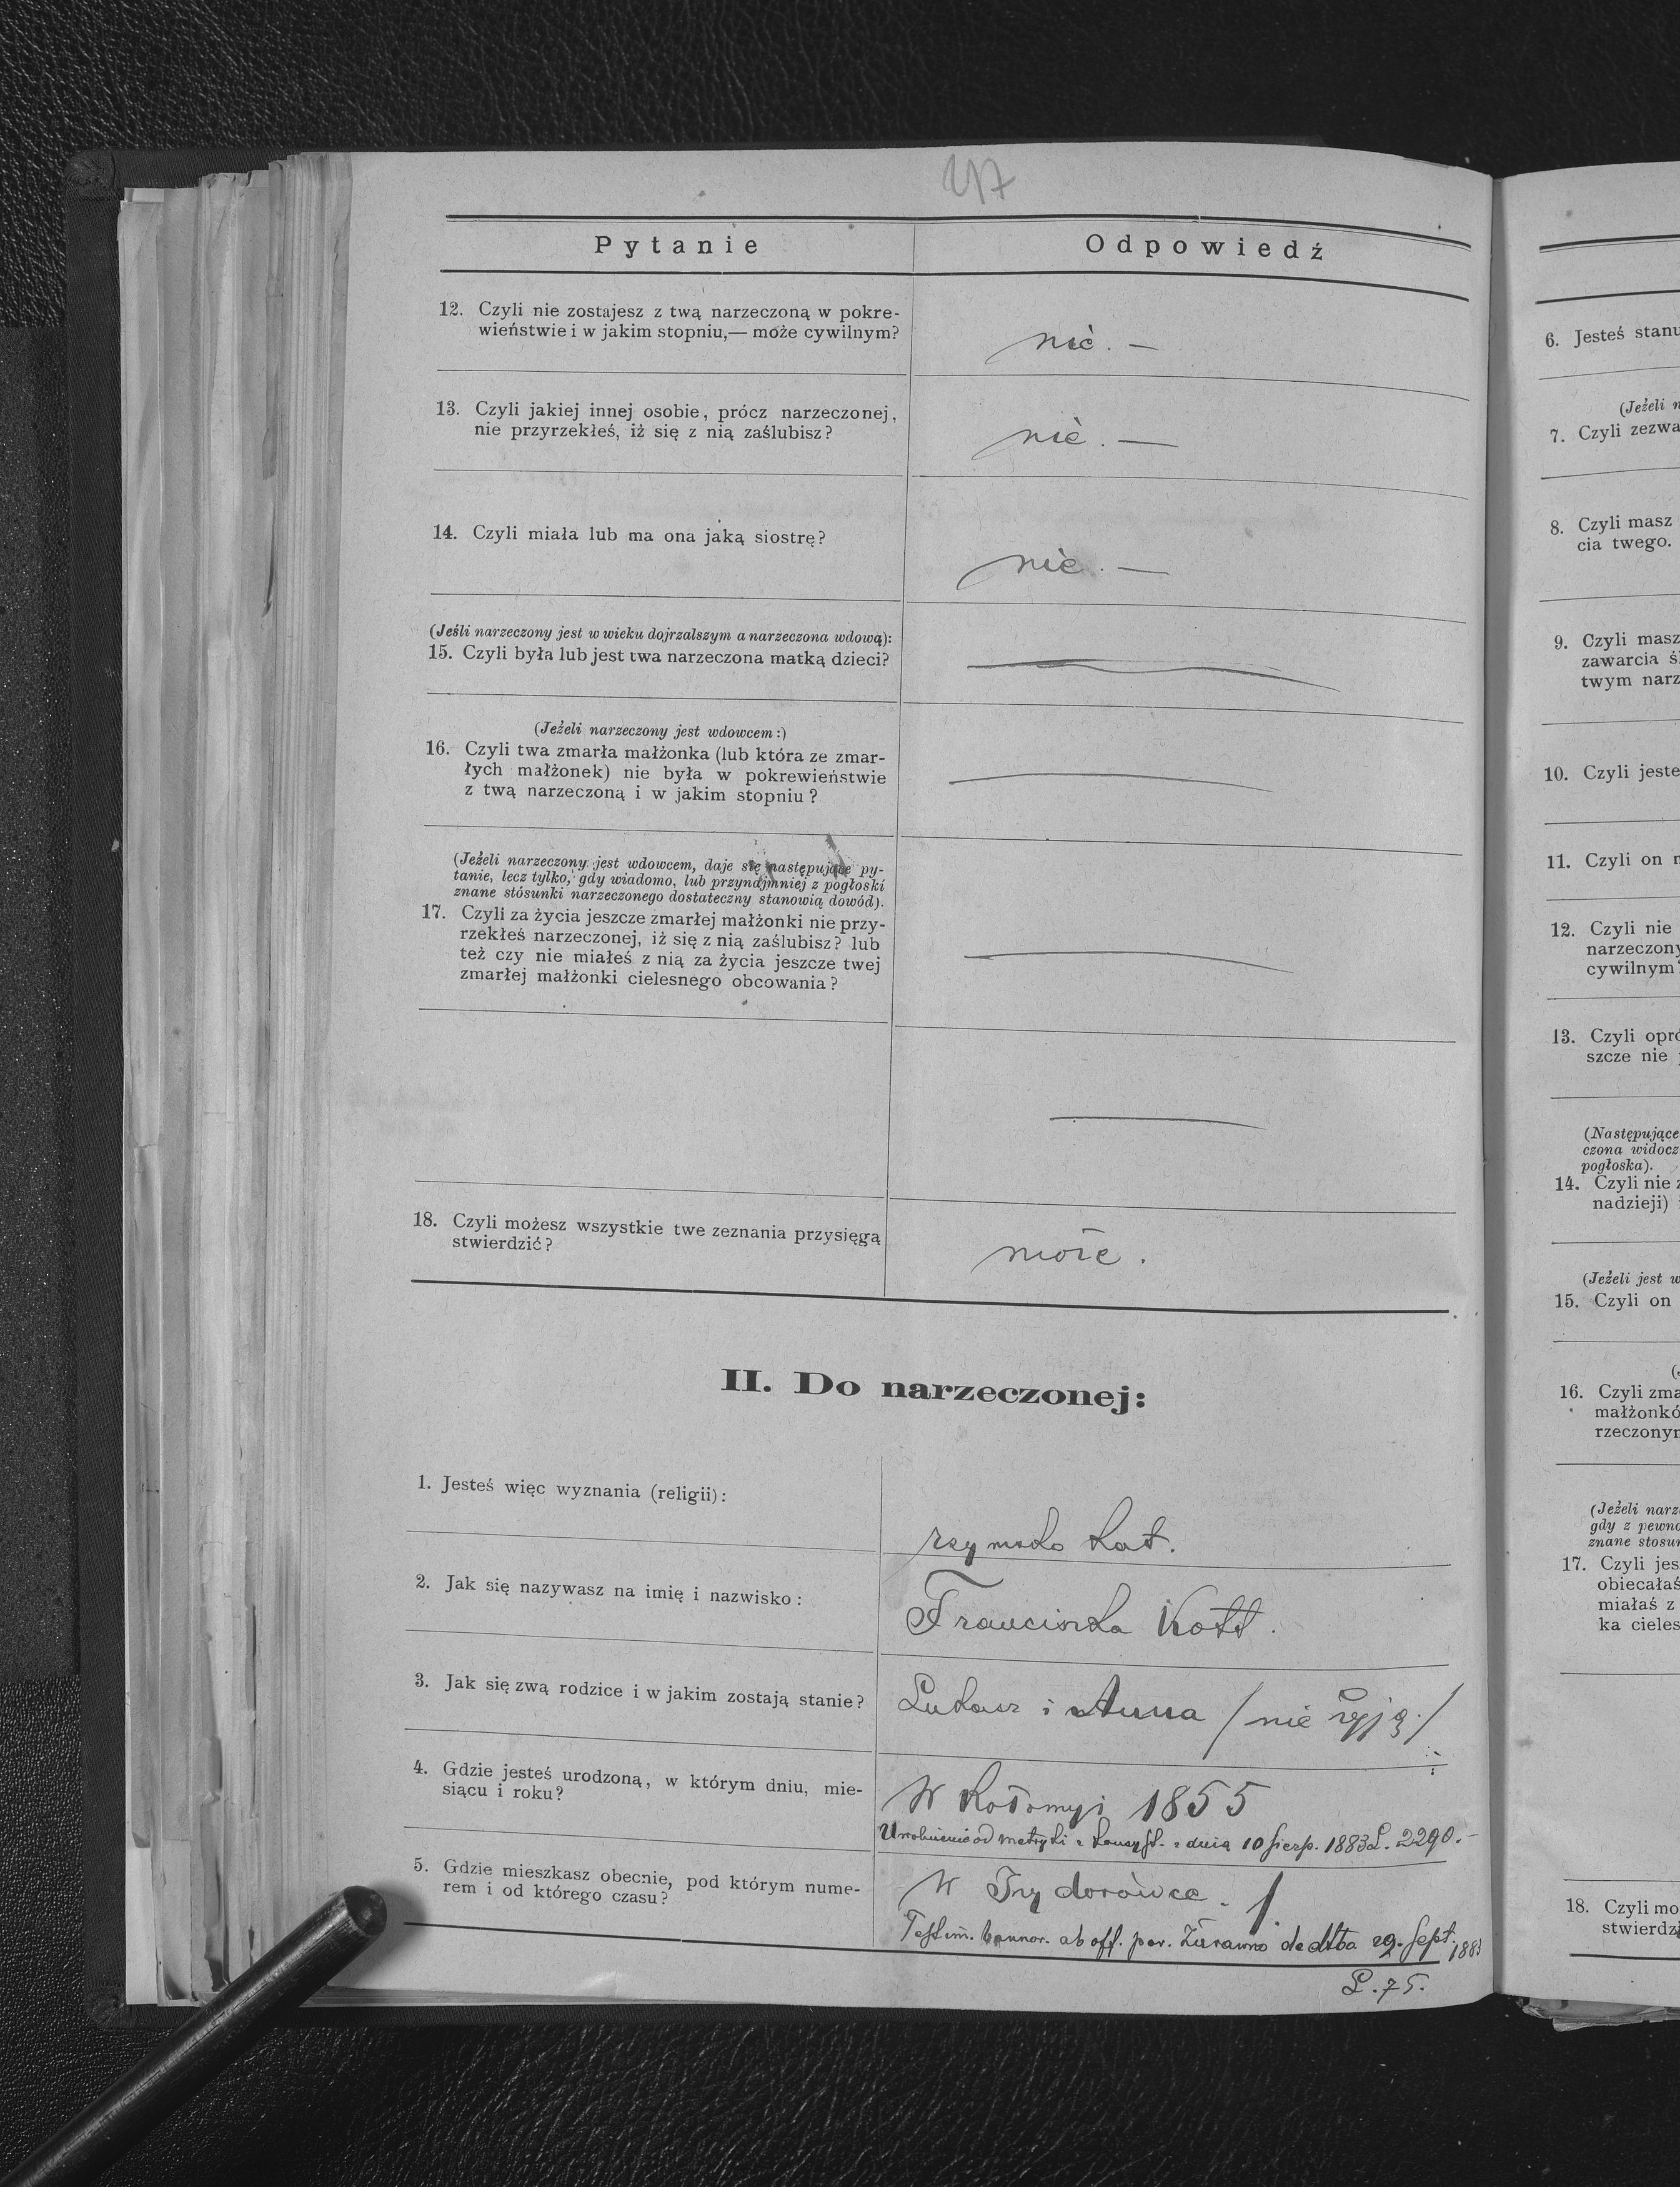 247
Pytanie Odpowiedź
12. Czyli nie zostajesz z twą narzeczoną w pokre-
wieństwie i w jakim stopniu,— może cywilnym?
nie. —
13. Czyli jakiej innej osobie, prócz narzeczonej,
nie przyrzekłeś, iż się z nią zaślubisz?
nie. —
14. Czyli miała lub ma ona jaką siostrę?
nie. —
(Jeśli narzeczony jest w wieku dojrzalszym a narzeczona wdową):
15. Czyli była lub jest twa narzeczona matką dzieci?
(Jeżeli narzeczony jest wdowcem:)
16. Czyli twa zmarła małżonka (lub która ze zmar-
łych małżonek) nie była w pokrewieństwie
z twą narzeczoną i w jakim stopniu?
(Jeżeli narzeczony jest wdowcem, daje się następujące py-
tanie, lecz tylko, gdy wiadomo, lub przynajmniej z pogłoski
znane stósunki narzeczonego dostateczny stanowią dowód).
17. Czyli za życia jeszcze zmarłej małżonki nie przy-
rzekłeś narzeczonej, iż się z nią zaślubisz? lub
też czy nie miałeś z nią za życia jeszcze twej
zmarłej małżonki cielesnego obcowania?
18. Czyli możesz wszystkie twe zeznania przysięgą
stwierdzić?
może.
II. Do narzeczonej:
1. Jesteś więc wyznania (religii):
rzymsko kat.
2. Jak się nazywasz na imię i nazwisko:
Franciszka Kott.
3. Jak się zwą rodzice i w jakim zostają stanie?
Łukasz i Anna / nie żyją. /
4. Gdzie jesteś urodzoną, w którym dniu, mie-
siącu i roku?
W Kołomyi 1855
Uwolnienie od metryki z dnia 10 Sierp. 1883 L. 2290.-
5. Gdzie mieszkasz obecnie, pod którym nume-
rem i od którego czasu?
W
Testim. bannor. ab off. par. Żurawno de dtto 29. Sept. 1883
L. 75.
6. Jesteś stanu
(Jeżeli n
7. Czyli zezwa
8. Czyli masz
cia twego.
9. Czyli masz
zawarcia ś
twym narz
10. Czyli jeste
11. Czyli on
12. Czyli nie
narzeczony
cywilnym?
13. Czyli opró
szcze nie
(Następujące
czona widocz
pogłoska).
14. Czyli nie z
nadzieji)
(Jeżeli jest w
15. Czyli on
16. Czyli zma
małżonkó
rzeczonym
(Jeżeli narz
gdy z pewno
znane stosun
17. Czyli jes
obiecałaś
miałaś z
ka cieles
18. Czyli mo
stwierdzi